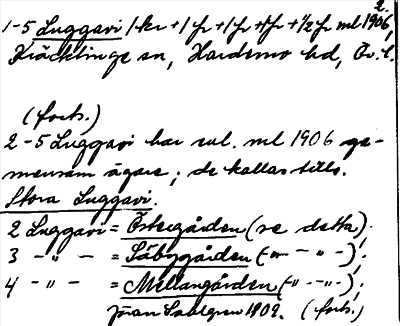 2.
1-5 Luggavi 1 kr + 1 fr + 1 fr + 1 fr + 1/2 fr ml 1906,
Kräcklinge sn, Hardemo hd, Ör. l.
(forts.)
2-5 Luggavi har enl. ml 1906 ge-
mensam ägare; de kallas tills.
Stora Luggavi.
2 Luggavi = Östergården (se detta);
3 -"- = Säbygården (-"- -"-);
4 -"- = Mellangården (-"- -"-);
Jöran Sahlgren 1909. (forts.)